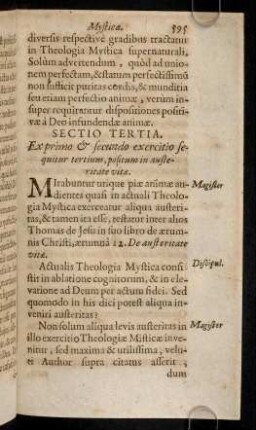 Mystica. 595
diversis respectivè gradibus tractatur
in Theologia Mystica supernaturali.
Solùm advertendum, quòd ad unio-
nem perfectam, & statum perfectissimũ
non sufficit puritas cordis, & munditia
seu etiam perfectio animæ, verùm in-
super requirantur dispositiones positi-
væ à Deo infundendæ animæ.
SECTIO TERTIA.
Ex primo & secundo exercitio se-
quitur tertium, positum in auste-
ritate vitæ.
MIrabuntur utique piæ animæ au- Magister
dientes quasi in actuali Theolo-
gia Mystica exerceatur aliqua austeri-
tas, & tamen ita esse, testatur inter alios
Thomas de Jesu in suo libro de ærum-
nis Christi, ærumnâ 12. De austeritate
vitæ.
Actualis Theologia Mystica consi- Discipul.
stit in ablatione cognitorum, & in ele-
vatione ad Deum per actum fidei. Sed
quomodo in his dici potest aliqua in-
veniri austeritas?
Non solum aliqua levis austeritas in Magister
illo exercitio Theologiæ Misticæ inve-
nitur, sed maxima & utilissima, velu-
ti Author supra citatus asserit,
dum